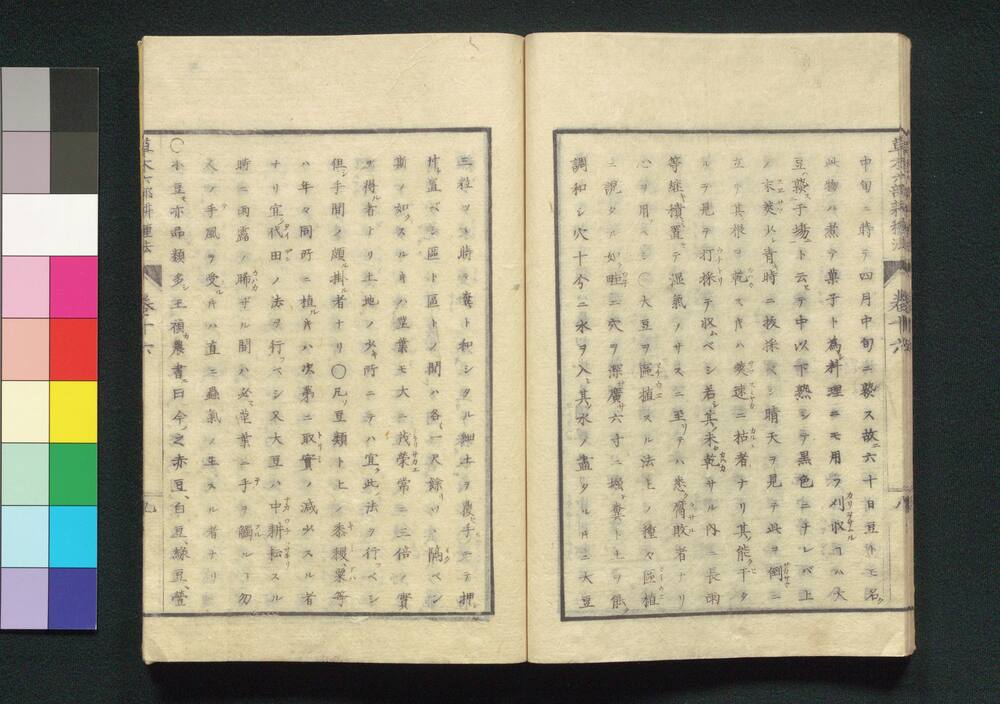 中旬ニ時テ四月中旬ニ熟ス故ニ六十日豆トモ名ク
此物ハ煮テ菓子ト為シ料理ニモ用フ刈収コハ大
豆ノ葵予場ト云ヒテ中以下熟シテ黒色ニナレバ上
ノ末莢ハ青時ニ抜採ベシ晴天ヲ見テ此ヲ倒ニ
立テ其根ヲ乾スキハ爽速ニ枯者ナリ其能干タ
ルテ見テ打採テ収ムベシ若其未乾サル内ニ長雨
等維積置テ湿氣ノサスニ至リテハ悉ク腐敗者ナリ
心ヲ用ベシ○大豆ヲ區植スル法上ノ種々區植
ニ説タル如畦ニ穴ヲ深廣サ六寸ニ堀糞ト土ヲ能
調和シ穴十分ニ水ヲ入其水ノ盡タルキニ大豆
三粒ヅヽ時ヲ糞ト和シタル細土ヲ覆ヒ手ニテ押
付置ベシ區ト區トノ間ハ各一尺餘リツヽ隔ベシ
斯ノ如クスルキハ莖葉モ大ニ茂榮常ニ三倍ノ實
ヲ得ル者ナリ土地ノ少キ所ニテハ宜ク此法ク行フベシ
但シ手間ノ頗ル掛ル者ナリ○凡リ豆類ト上ノ黍稷粟等
ハ年々同所ニ植ルキハ次第ニ取實ノ減少スル者
ナリ宜ク代田ノ法ヲ行フベシ又大豆ハ中耕松スル
時ニ雨露ノ晞ザル間ハ必ズ莖葉ニ手ヲ觸ルコ勿
人ノ手風ヲ受ルキハ直ニ蟲氣ノ生スル者ナリ
○小豆モ亦品類多シ王禎カ農書ニ曰今之赤豆白豆緑豆䝁
草木六部耕種法 卷十六 八
草木六部耕種法 卷十六 九